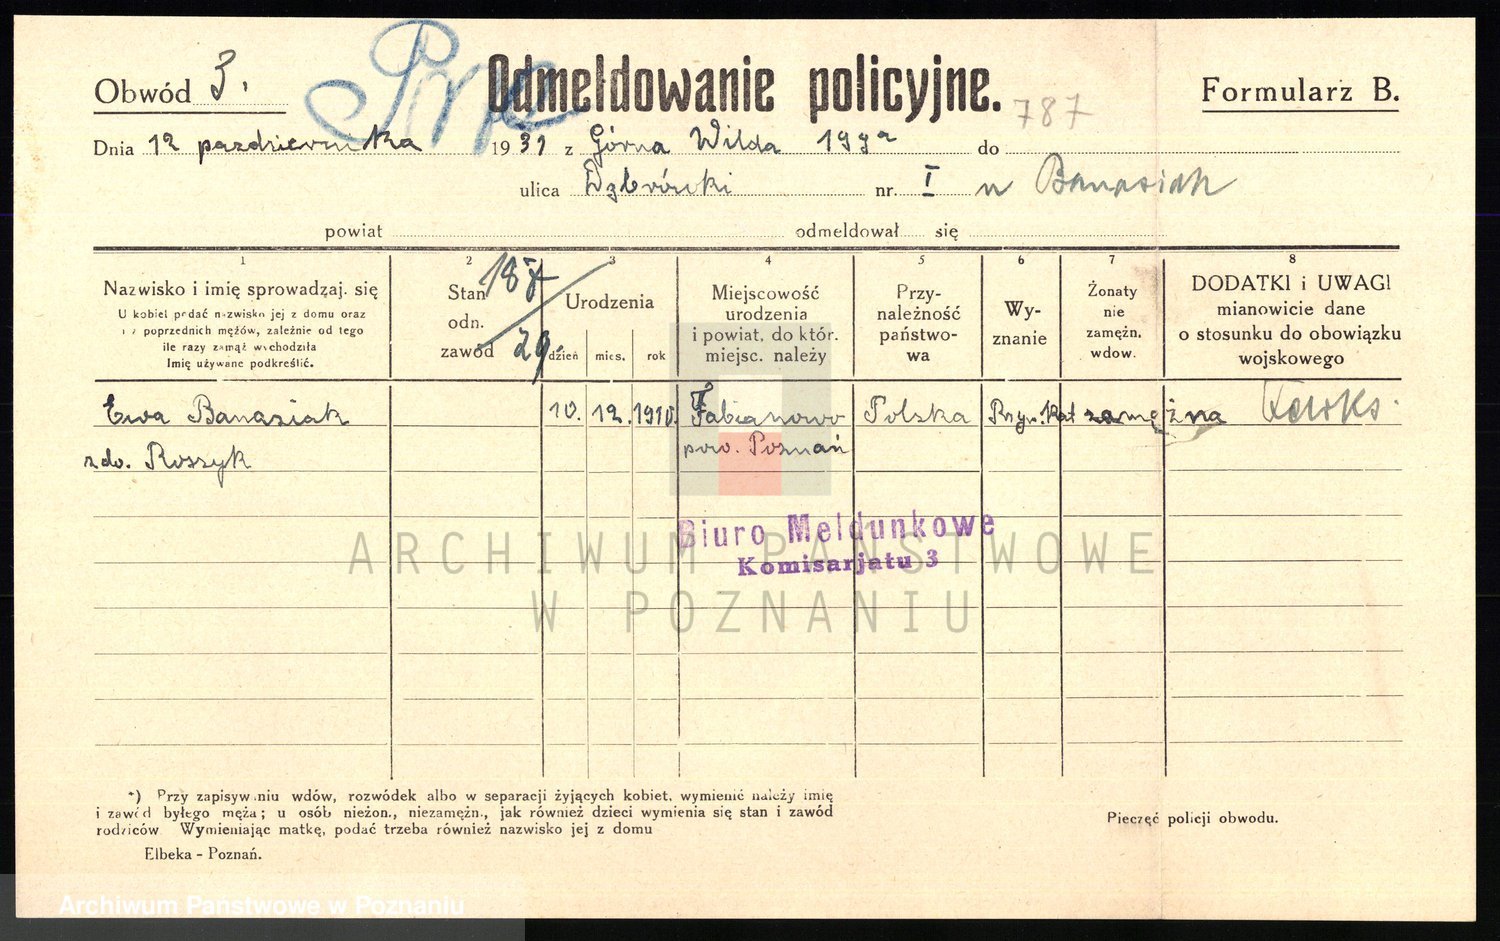 Obwód 3.
Odmeldowanie policyjne.
787
Formularz B.
Dnia 12 pazdziernika 1931 z Górna Wilda 199a do
ulica nr. I Banasiak
powiat odmeldował się
1 2 3 4 5 6 7 8
Nazwisko i imię sprowadzaj. się
U kobiet podać nazwisko jej z domu oraz
i z poprzednich mężów, zależnie od tego
ile razy zamąż wychodziła
Imię używane podkreślić.
Stan
odn.
zawód
18/I
29
Urodzenia
dzień mies. rok
Miejscowość
urodzenia
i powiat, do któr.
miejsc. należy
Przy-
należność
państwo-
wa
Wy-
znanie
Żonaty
nie
zamężn.
wdow.
DODATKI i UWAGI
mianowicie dane
o stosunku do obowiązku
wojskowego
Ewa Banasiak 10. 12. 1910. Fabianowo Polska Rzym. kat zamężna
z do. Roszyk pow. Poznań
Biuro Meldunkowe
Komisarjatu 3
ARCHIWUM PAŃSTWOWE
W POZNANIU
*) Przy zapisywaniu wdów, rozwódek albo w separacji żyjących kobiet, wymienić należy imię
i zawód byłego męża; u osób nieżon., niezamężn., jak również dzieci wymienia się stan i zawód
rodziców Wymieniając matkę, podać trzeba również nazwisko jej z domu
Pieczęć policji obwodu.
Elbeka - Poznań.
Archiwum Państwowe w Poznaniu